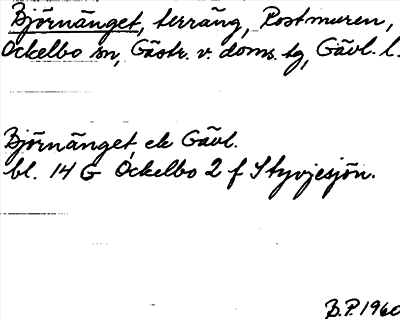 Björnänget, terräng, Postmuren,
Ockelbo sn, Gästr. v. doms. tg, Gävl. l.
Björnänget, ek Gävl.
bl. 14 G Ockelbo 2 f Styvjesjön.
B.P. 1960